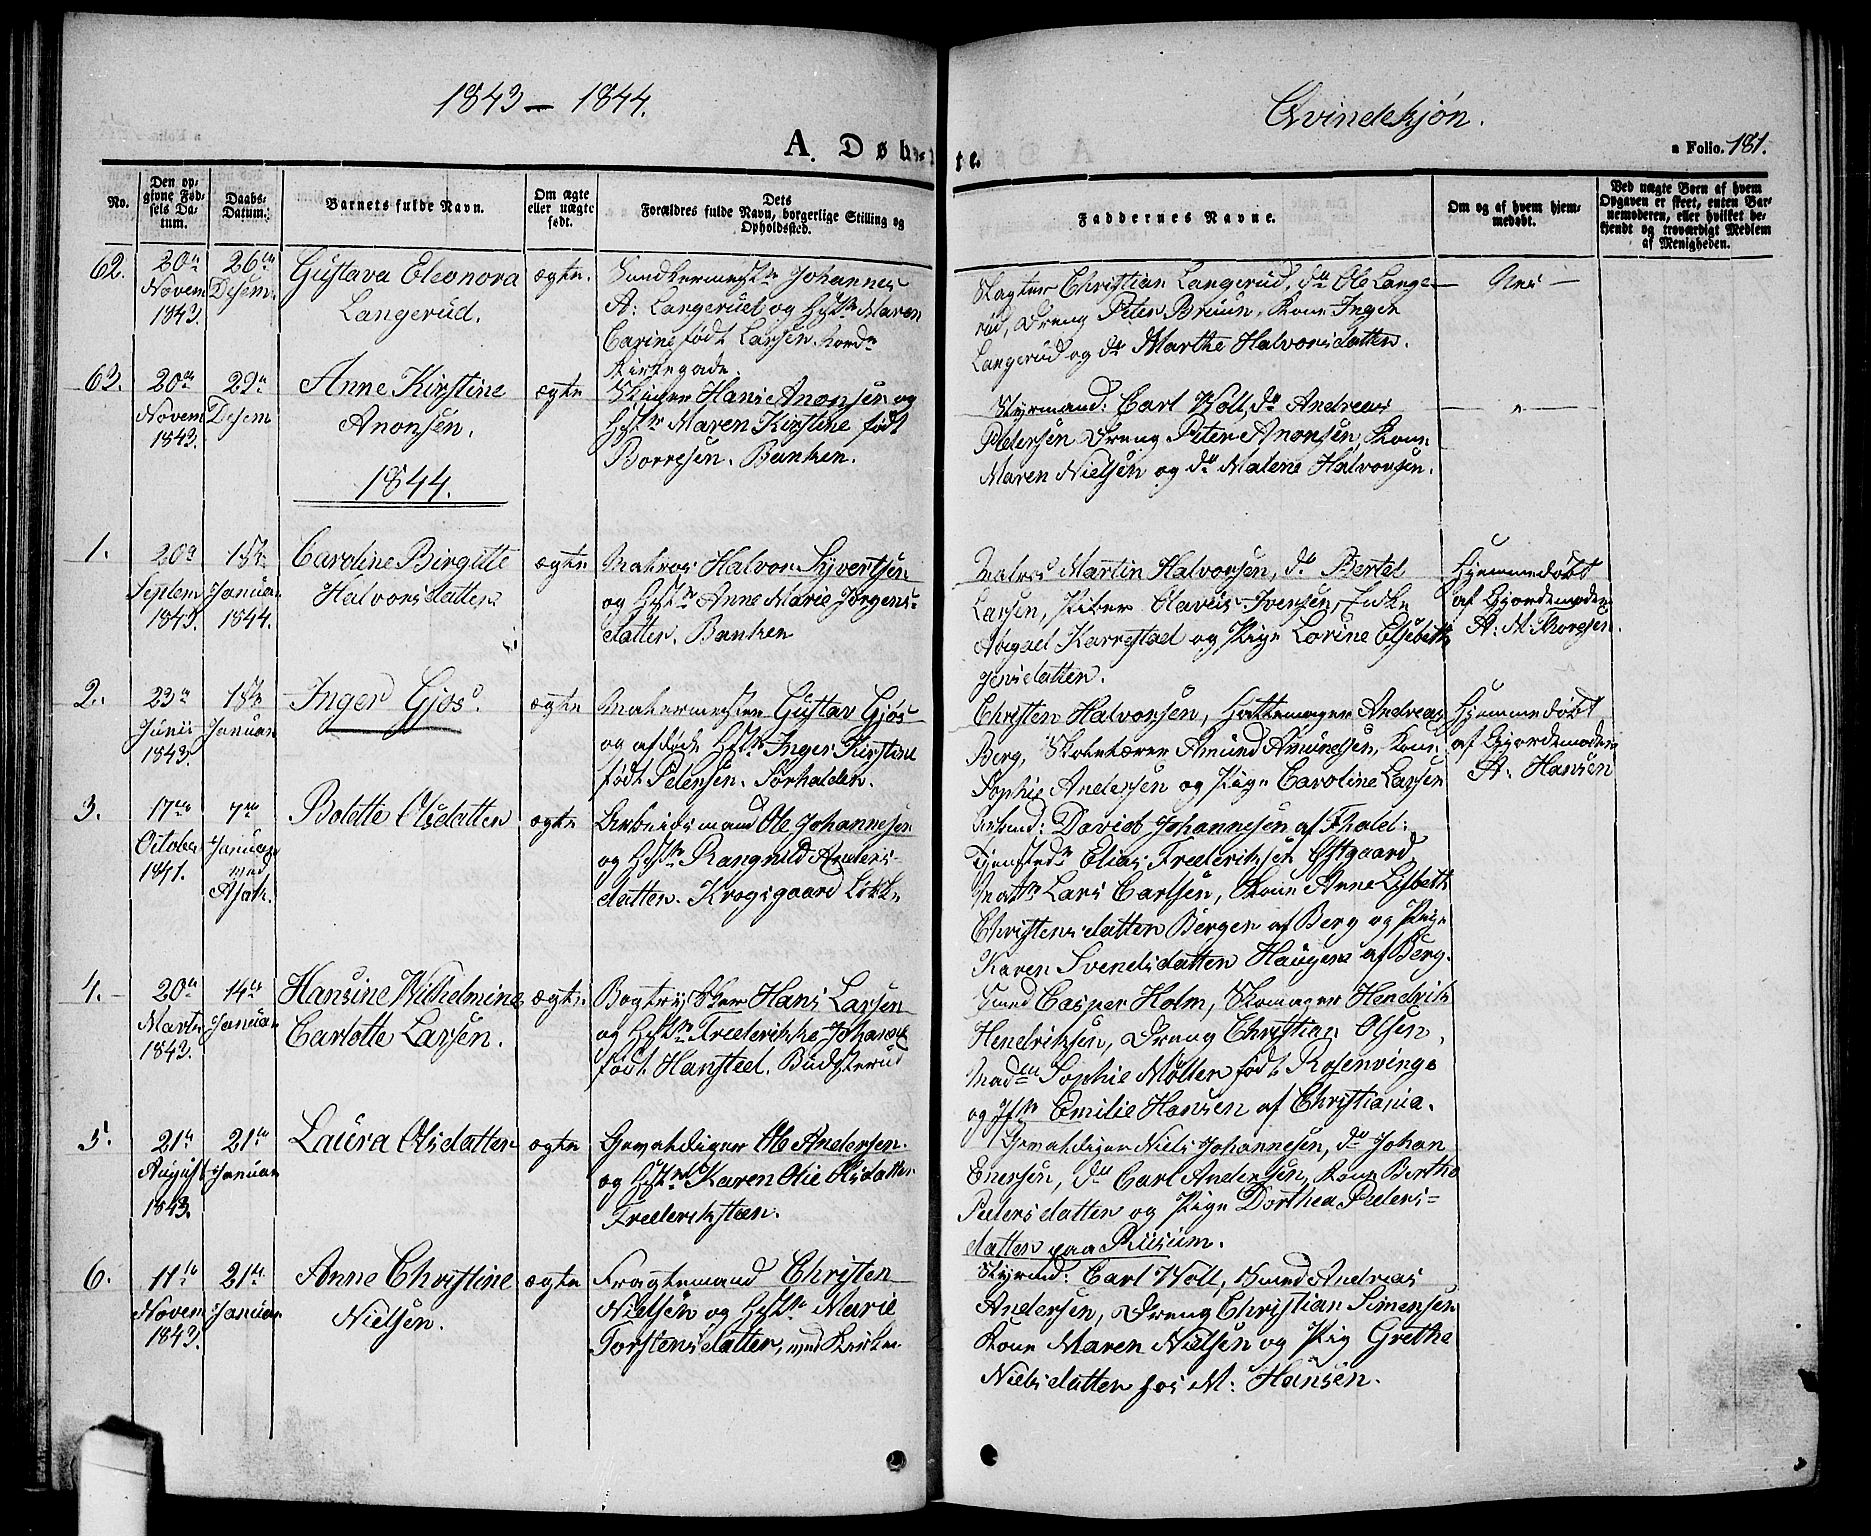 1843 – 1844.
Qvindekjøn.
A. Døbte.
a Folio. 181.
No.
Den opgivne Fødsels Datum.
Daabs-Datum.
Barnets fulde Navn.
Om ægte eller uægte født.
Dets Forældres fulde Navn, borgerlige Stilling og Opholdssted.
Faddernes Navne.
Om og af hvem hjemmedøbt.
Ved uægte Børn af hvem Opgaven er skeet, enten Barnemoderen, eller hvilket bekjendt og troværdigt Medlem af Menigheden.
62.
20de Novem 1843.
26de Desem.
Gustava Eleonora
Langerud.
ægte.
Johannes
A: Langerud og Hstr Maren
Carine født Larsen. Nordre
Kirkegade.
Slagter Christian Langerud, do Ole Lange-
rud, Dreng Peter Bruun, Kone Inger
Langerud og do Marthe Halvorsdatter.
Nei –
63.
20de Novem 1843.
29de Desem
Anne Kirstine
Anonsen.
ægte
Skipper Hans Anonsen og
Hstr Maren Kirstine født
Borresen. Banken.
Styrmand: Carl Woll, do Andreas
Pedersen Dreng Peter Anonsen, Kone
Maren Nielsen og do Malene Halvorsen.
– " –
1844.
1.
20de Septem 1843.
1ste Januar 1844.
Caroline Birgitte
Halvorsdatter
ægte
Matros Halvor Syvertsen
og Hstr Anne Marie Jørgens-
datter. Banken
Matros Martin Halvorsen, do Bertel
Larsen, Piber Olaves Ivensen, Enke
Abigael Karrestad og Pige Lorine Elsebeth
Jensdatter.
Hjemmedøbt
af Gjordemoder
A: M: Thoresen.
2.
23de Junii 1843.
1ste Januar
Inger Gjøs.
ægte
Malermester Gustav Gjøs
og afdøde Hstr Inger Kirstine
født Petersen. Sørhalden.
Christen Halvorsen, Hattemager Andreas
Berg, Skolelærer Amund Amundsen, Kone
Sophie Andersen og Pige Caroline Larsen
Hjemmedøbt
af Gjordemoder
A. Hansen
3.
17de October 1841.
7de Januar med
Bolette Olsdatter
ægte
Arbeidsmand Ole Johannesen
og Hstr Rangnild Anders-
datter. Krogsgaard Løkke
David Johannesen af Fhald:
Tjenested: Elias Frederiksen Østgaard,
Matrs Lars Carlsen, Kone Anne Lisbeth
Christensdatter Bergen af Berg og Pige
Karen Svendsdatter Haugen af Berg.
4.
20de Marts 1843.
14de Januar
Hansine Wilhelmine
Carlotte Larsen.
ægte.
Bogtrykker Hans Larsen
og Hstr Frederikke Johanne
født Hansteel. Budsterud
Smed Casper Holm, Skomager Hendrik
Hendriksen, Dreng Christian Olsen,
Madm Sophie Møller født Rosenvinge
og Jfr Emilie Hansen af Christiania.
5.
21de August 1843.
21de Januar
Laura Olsdatter
ægte
Gevaldiger Ole Andersen.
og Hstr Karen Olie Olsdatter
Frederiksteen.
Gevaldiger Niels Johannesen, do Johan
Enersen, do Carl Andersen, Kone Berthe
Pedersdatter og Pige Dorthea Peders-
datter paa Riisum.
6.
11te Novem 1843.
21de Januar
Anne Christine
Nielsen.
ægte
Fragtemand Christen
Nielsen og Hstr Marie
Torstensdatter, ved Kirken
Styrmd: Carl Woll, Smed Andreas
Andersen, Dreng Christian Simensen
Kone Maren Nielsen og Pig Grethe
Nielsdatter hos M: Hansen.